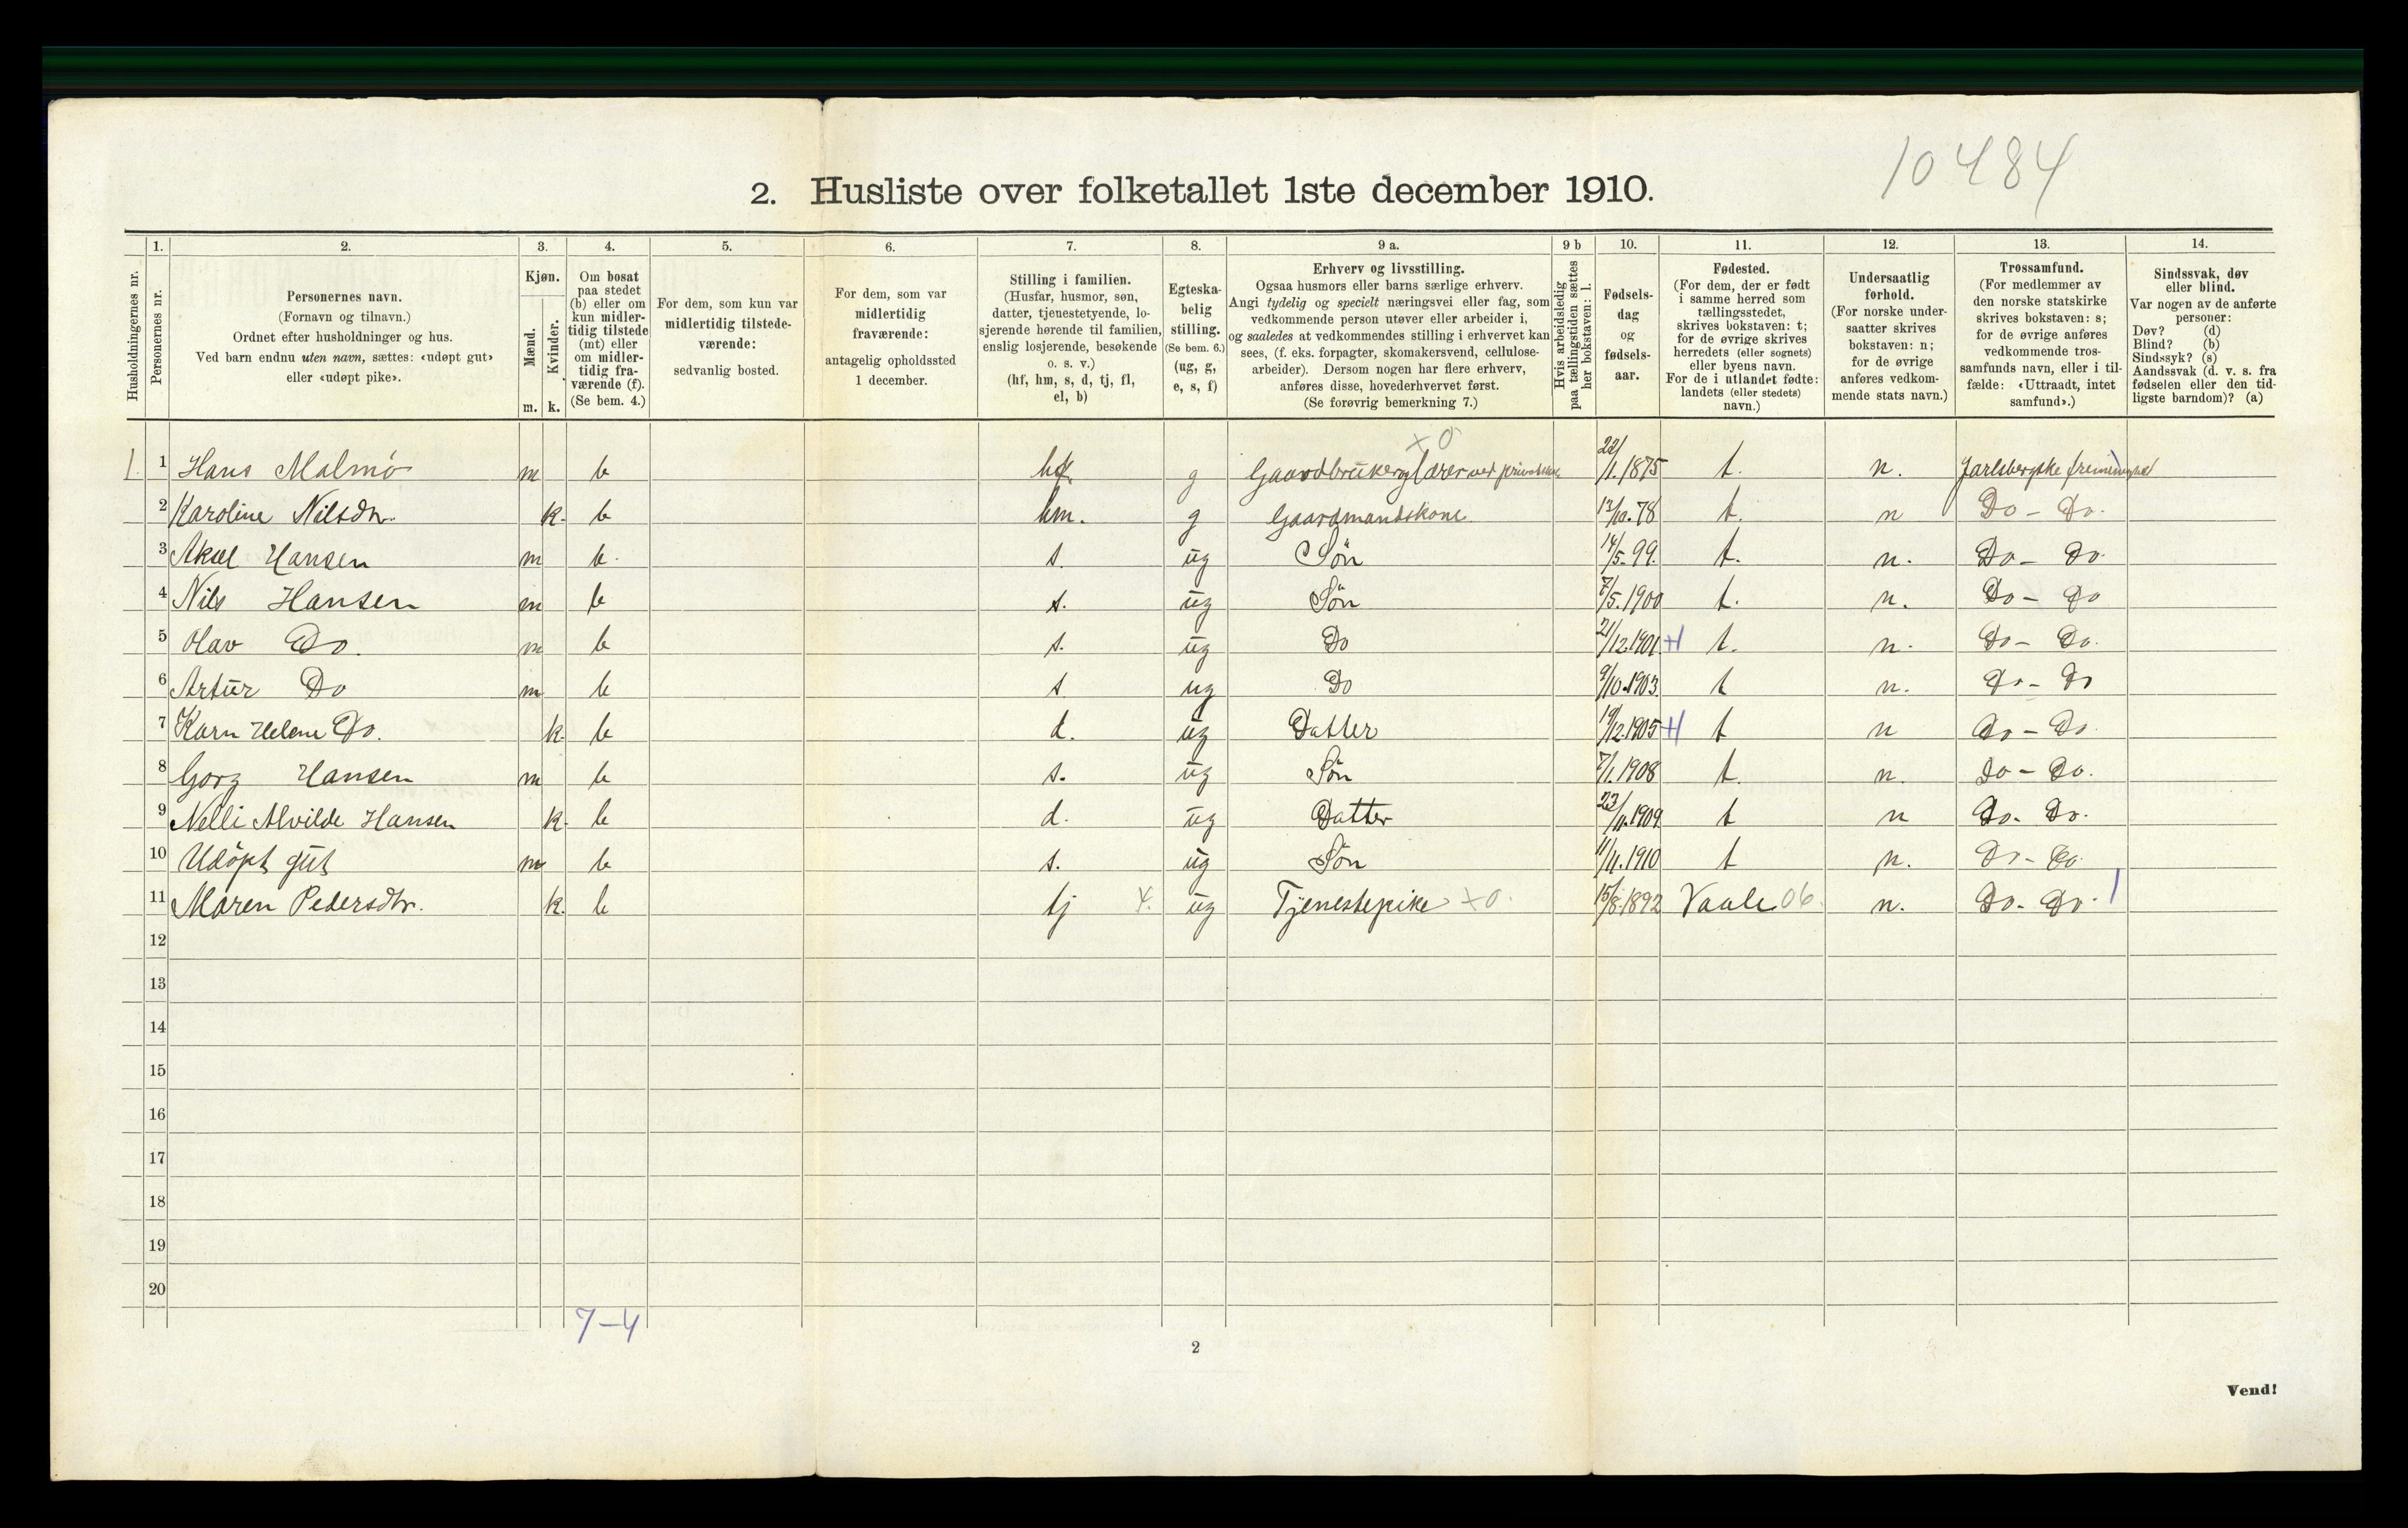 10484
2. Husliste over folketallet 1ste december 1910.
Husholdningernes nr.
1.
Personernes nr.
2.
Personernes navn.
(Fornavn og tilnavn.)
Ordnet efter husholdninger og hus.
Ved barn endnu uten navn, sættes: «udøpt gut»
eller «udøpt pike».
3.
Kjøn.
Mænd.
m.
Kvinder.
k.
4.
Om bosat
paa stedet
(b) eller om
kun midler-
tidig tilstede
(mt) eller
om midler-
tidig fra-
værende (f).
(Se bem. 4.)
5.
For dem, som kun var
midlertidig tilstede-
værende:
sedvanlig bosted.
6.
For dem, som var
midlertidig
fraværende:
antagelig opholdssted
1 december.
7.
Stilling i familien.
(Husfar, husmor, søn,
datter, tjenestetyende, lo-
sjerende hørende til familien,
enslig losjerende, besøkende
o. s. v.)
(hf, hm, s, d, tj, fl,
el, b)
8.
Egteska-
belig
stilling.
(Se bem. 6.)
(ug, g,
e, s, f)
9 a.
Erhverv og livsstilling.
Ogsaa husmors eller barns særlige erhverv.
Angi tydelig og specielt næringsvei eller fag, som
vedkommende person utøver eller arbeider i,
og saaledes at vedkommendes stilling i erhvervet kan
sees, (f. eks. forpagter, skomakersvend, cellulose-
arbeider). Dersom nogen har flere erhverv,
anføres disse, hovederhvervet først.
(Se forøvrig bemerkning 7.)
9 b
Hvis arbeidsledig
paa tællingstiden sættes
her bokstaven: l.
10.
Fødsels-
dag
og
fødsels-
aar.
11.
Fødested.
(For dem, der er født
i samme herred som
tællingsstedet,
skrives bokstaven: t;
for de øvrige skrives
herredets (eller sognets)
eller byens navn.
For de i utlandet fødte:
landets (eller stedets)
navn.)
12.
Undersaatlig
forhold.
(For norske under-
saatter skrives
bokstaven: n;
for de øvrige
anføres vedkom-
mende stats navn.)
13.
Trossamfund.
(For medlemmer av
den norske statskirke
skrives bokstaven: s;
for de øvrige anføres
vedkommende tros-
samfunds navn, eller i til-
fælde: «Uttraadt, intet
samfund».)
14.
Sindssvak, døv
eller blind.
Var nogen av de anførte
personer:
Døv? (d)
Blind? (b)
Sindssyk? (s)
Aandssvak (d. v. s. fra
fødselen eller den tid-
ligste barndom)? (a)
1. 1 Hans Malmö m b hf. g Gaardbruker og lærer ved x 0 22/1.1875 t. n. Jarlsbergske frimenighed
2 Karoline Nilsdtr. k. b hm. g Gaardmandskone 13/10.78 t. n Do - Do.
3 Aksel Hansen m b. s. ug Sön 14/5.99. t. n. Do - Do
4 Nils Hansen m b s. ug Sön 7/5.1900 t. n. Do - Do
5 Olav Do. m b s. ug Do 21/12.1901. H t. n. Do - Do.
6 Artur Do m b s ug Do 9/10.1903. t n. Do - Do
7 Karn Helene Do. k. b d. ug Datter 19/12.1905 H t n Do - Do
8 Gorg Hansen m b s. ug Sön 7/1.1908 t. n. Do - Do.
9 Nelli Alvilde Hansen k. b d. ug Datter 23/1.1909. t n Do. Do.
10 Udöpt gut m b s. ug Sön 11/11.1910 t n. Do - Do.
11 Maren Pedersdtr. k. b tj 4. ug Tjenestepike x 0. 15/8.1892 Vaale 06. n. Do. Do. 1
12
13
14
15
16
17
18
19
20
7-4
2
Vend!